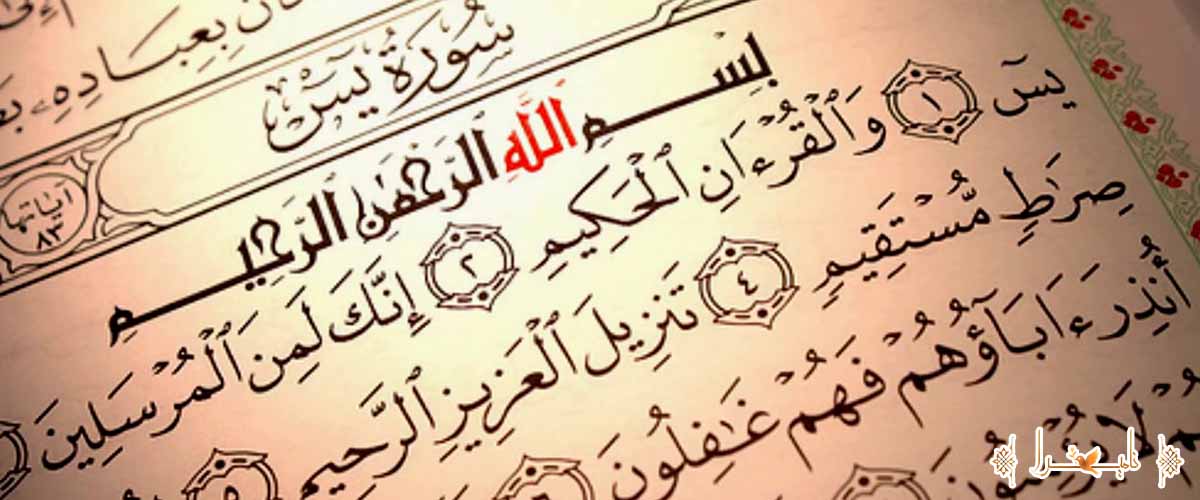 بِعِبَادِهِۦ
سُورَةُ يسٓ
ءَايَاتُهَا
٨٣
بِسْمِ ٱللَّهِ ٱلرَّحْمَٰنِ ٱلرَّحِيمِ
يسٓ ١ وَٱلْقُرْءَانِ ٱلْحَكِيمِ ٢ إِنَّكَ لَمِنَ ٱلْمُرْسَلِينَ
صِرَٰطٍ مُّسْتَقِيمٍ ٤ تَنزِيلَ ٱلْعَزِيزِ ٱلرَّحِيمِ ٥
أُنذِرَ ءَابَآؤُهُمْ فَهُمْ غَٰفِلُونَ ٦
لَا يُؤْمِنُونَ